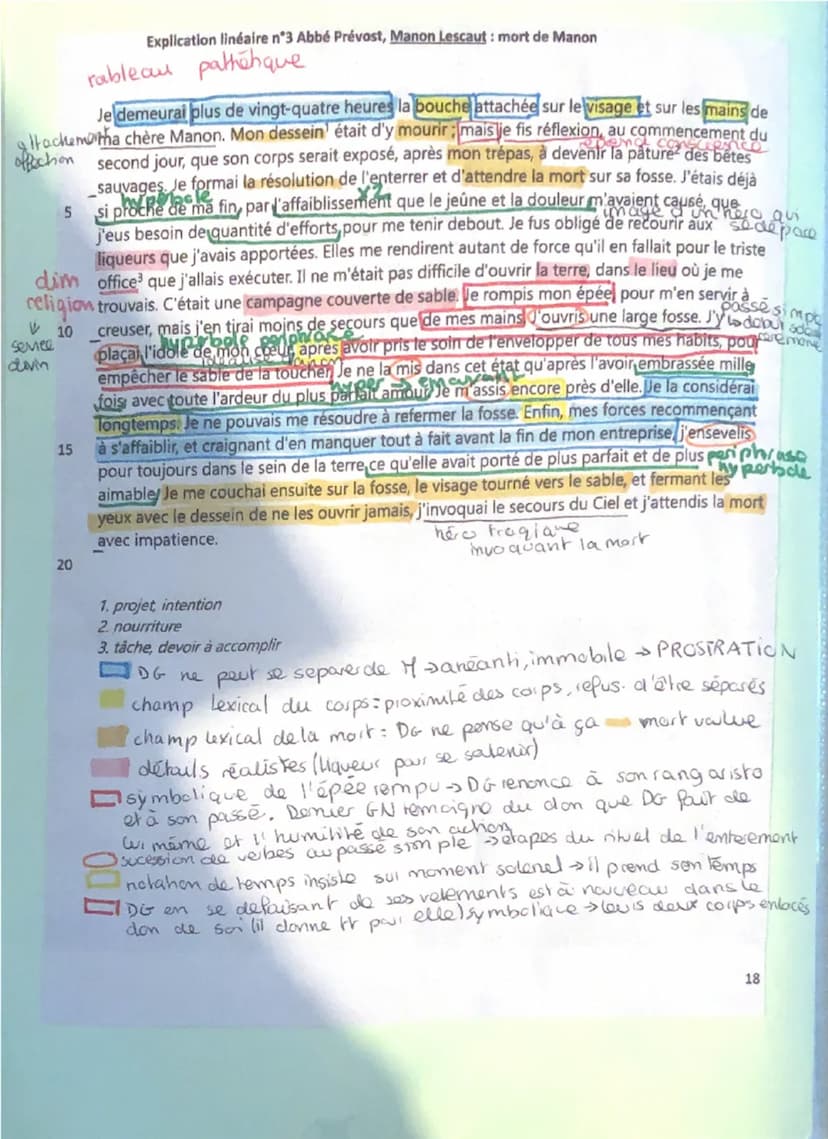 Explication linéaire n°3 Abbé Prévost, Manon Lescaut : mort de Manon
tableau pathétique
Je demeurai plus de vingt-quatre heures la bouche attachée sur le visage et sur les mains de
attachement
ma chère Manon. Mon dessein¹ était d'y mourir ; mais je fis réflexion, au commencement du
affection
prend conscience
second jour, que son corps serait exposé, après mon trépas, à devenir la pâture² des bêtes
sauvages. Je formai la résolution de l'enterrer et d'attendre la mort sur sa fosse. J'étais déjà
hyperbole
x2
5 si proche de ma fin, par l'affaiblissement que le jeûne et la douleur m'avaient causé, que
image d'un héro qui
se dépace
j'eus besoin de quantité d'efforts pour me tenir debout. Je fus obligé de recourir aux
liqueurs que j'avais apportées. Elles me rendirent autant de force qu'il en fallait pour le triste
dim
religion
office³ que j'allais exécuter. Il ne m'était pas difficile d'ouvrir la terre, dans le lieu où je me
trouvais. C'était une campagne couverte de sable. Je rompis mon épée, pour m'en servir à
passé simple
10 creuser, mais j'en tirai moins de secours que de mes mains. J'ouvris une large fosse. J'y
↳ début
service
divin
hyperbole periphrase
plaçai l'idole de mon cœur, après avoir pris le soin de l'envelopper de tous mes habits, pour
empêcher le sable de la toucher. Je ne la mis dans cet état qu'après l'avoir embrassée mille
hyper →
fois, avec toute l'ardeur du plus parfait amour. Je m'assis encore près d'elle. Je la considérai
longtemps. Je ne pouvais me résoudre à refermer la fosse. Enfin, mes forces recommençant
15 à s'affaiblir, et craignant d'en manquer tout à fait avant la fin de mon entreprise, j'ensevelis
pour toujours dans le sein de la terre ce qu'elle avait porté de plus parfait et de plus
periphrase
hyperbole
aimable. Je me couchai ensuite sur la fosse, le visage tourné vers le sable, et fermant les
yeux avec le dessein de ne les ouvrir jamais, j'invoquai le secours du Ciel et j'attendis la mort
avec impatience.
héro tragique
invoquant la mort
20
1. projet, intention
2. nourriture
3. tâche, devoir à accomplir
DG ne peut se separer de M → anéanti, immobile → PROSTRATION
champ lexical du corps = proximité des corps, refus d'être séparés
champ lexical de la mort = DG ne pense qu'à ça mort value
détails réalistes (liqueur pour se sutenir)
symbolique de l'épée rempu → DG renonce à son rang aristo
et à son passé. Dernier GN témoigne du don que DG fait de
lui même et l'humilité de son action
sucession de verbes au passé simple → étapes du rituel de l'enterement
notation de temps insiste sur moment solenel → il prend son temps
DG en se défaisant de ses vetements est à nouveau dans le
don de soi (il donne tt pour elle) symbolique → leurs deux corps enlacés
18